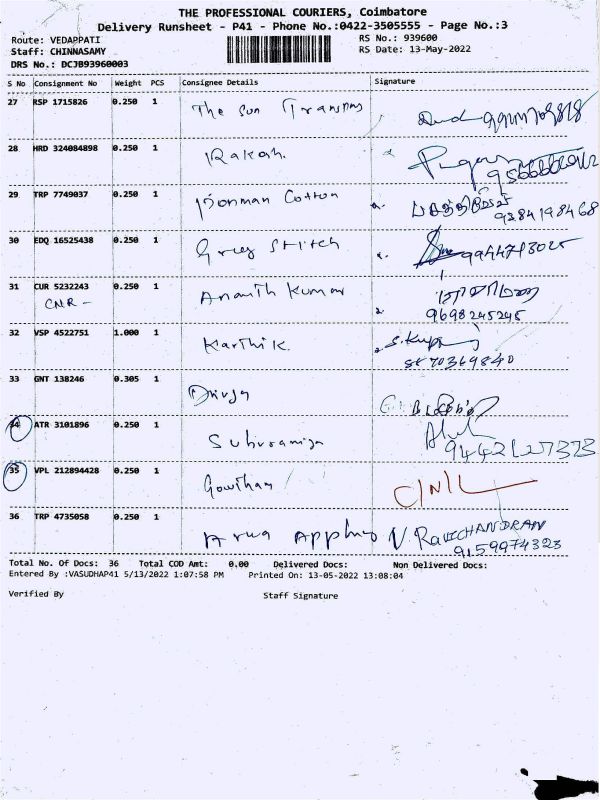 THE PROFESSIONAL COURIERS, Coimbatore
Delivery Runsheet - P41 - Phone No.:0422-3505555 - Page No.:3
Route: VEDAPPATI
RS No.: 939600
Staff: CHINNASAMY
RS Date: 13-May-2022
DRS No.: DCJB93960003
S No Consignment No Weight PCS Consignee Details Signature
27 RSP 1715826 0.250 1 The Sun
28 HRD 324084898 0.250 1 Rakesh.
29 TRP 7749037 0.250 1 Cotton
9384198468
30 EDQ 16525438 0.250 1 Stitch
9944713025
31 CUR 5232243 0.250 1 Ananth Kumar
CNR -
9698245245
32 VSP 4522751 1.000 1 Karthik
33 GNT 138246 0.305 1 Divya
34 ATR 3101896 0.250 1
35 VPL 212894428 0.250 1 Gowtham
36 TRP 4735058 0.250 1 N RAVICHANDRAN
9159974323
Total No. Of Docs: 36 Total COD Amt: 0.00 Delivered Docs: Non Delivered Docs:
Entered By :VASUDHAP41 5/13/2022 1:07:58 PM Printed On: 13-05-2022 13:08:04
Verified By Staff Signature